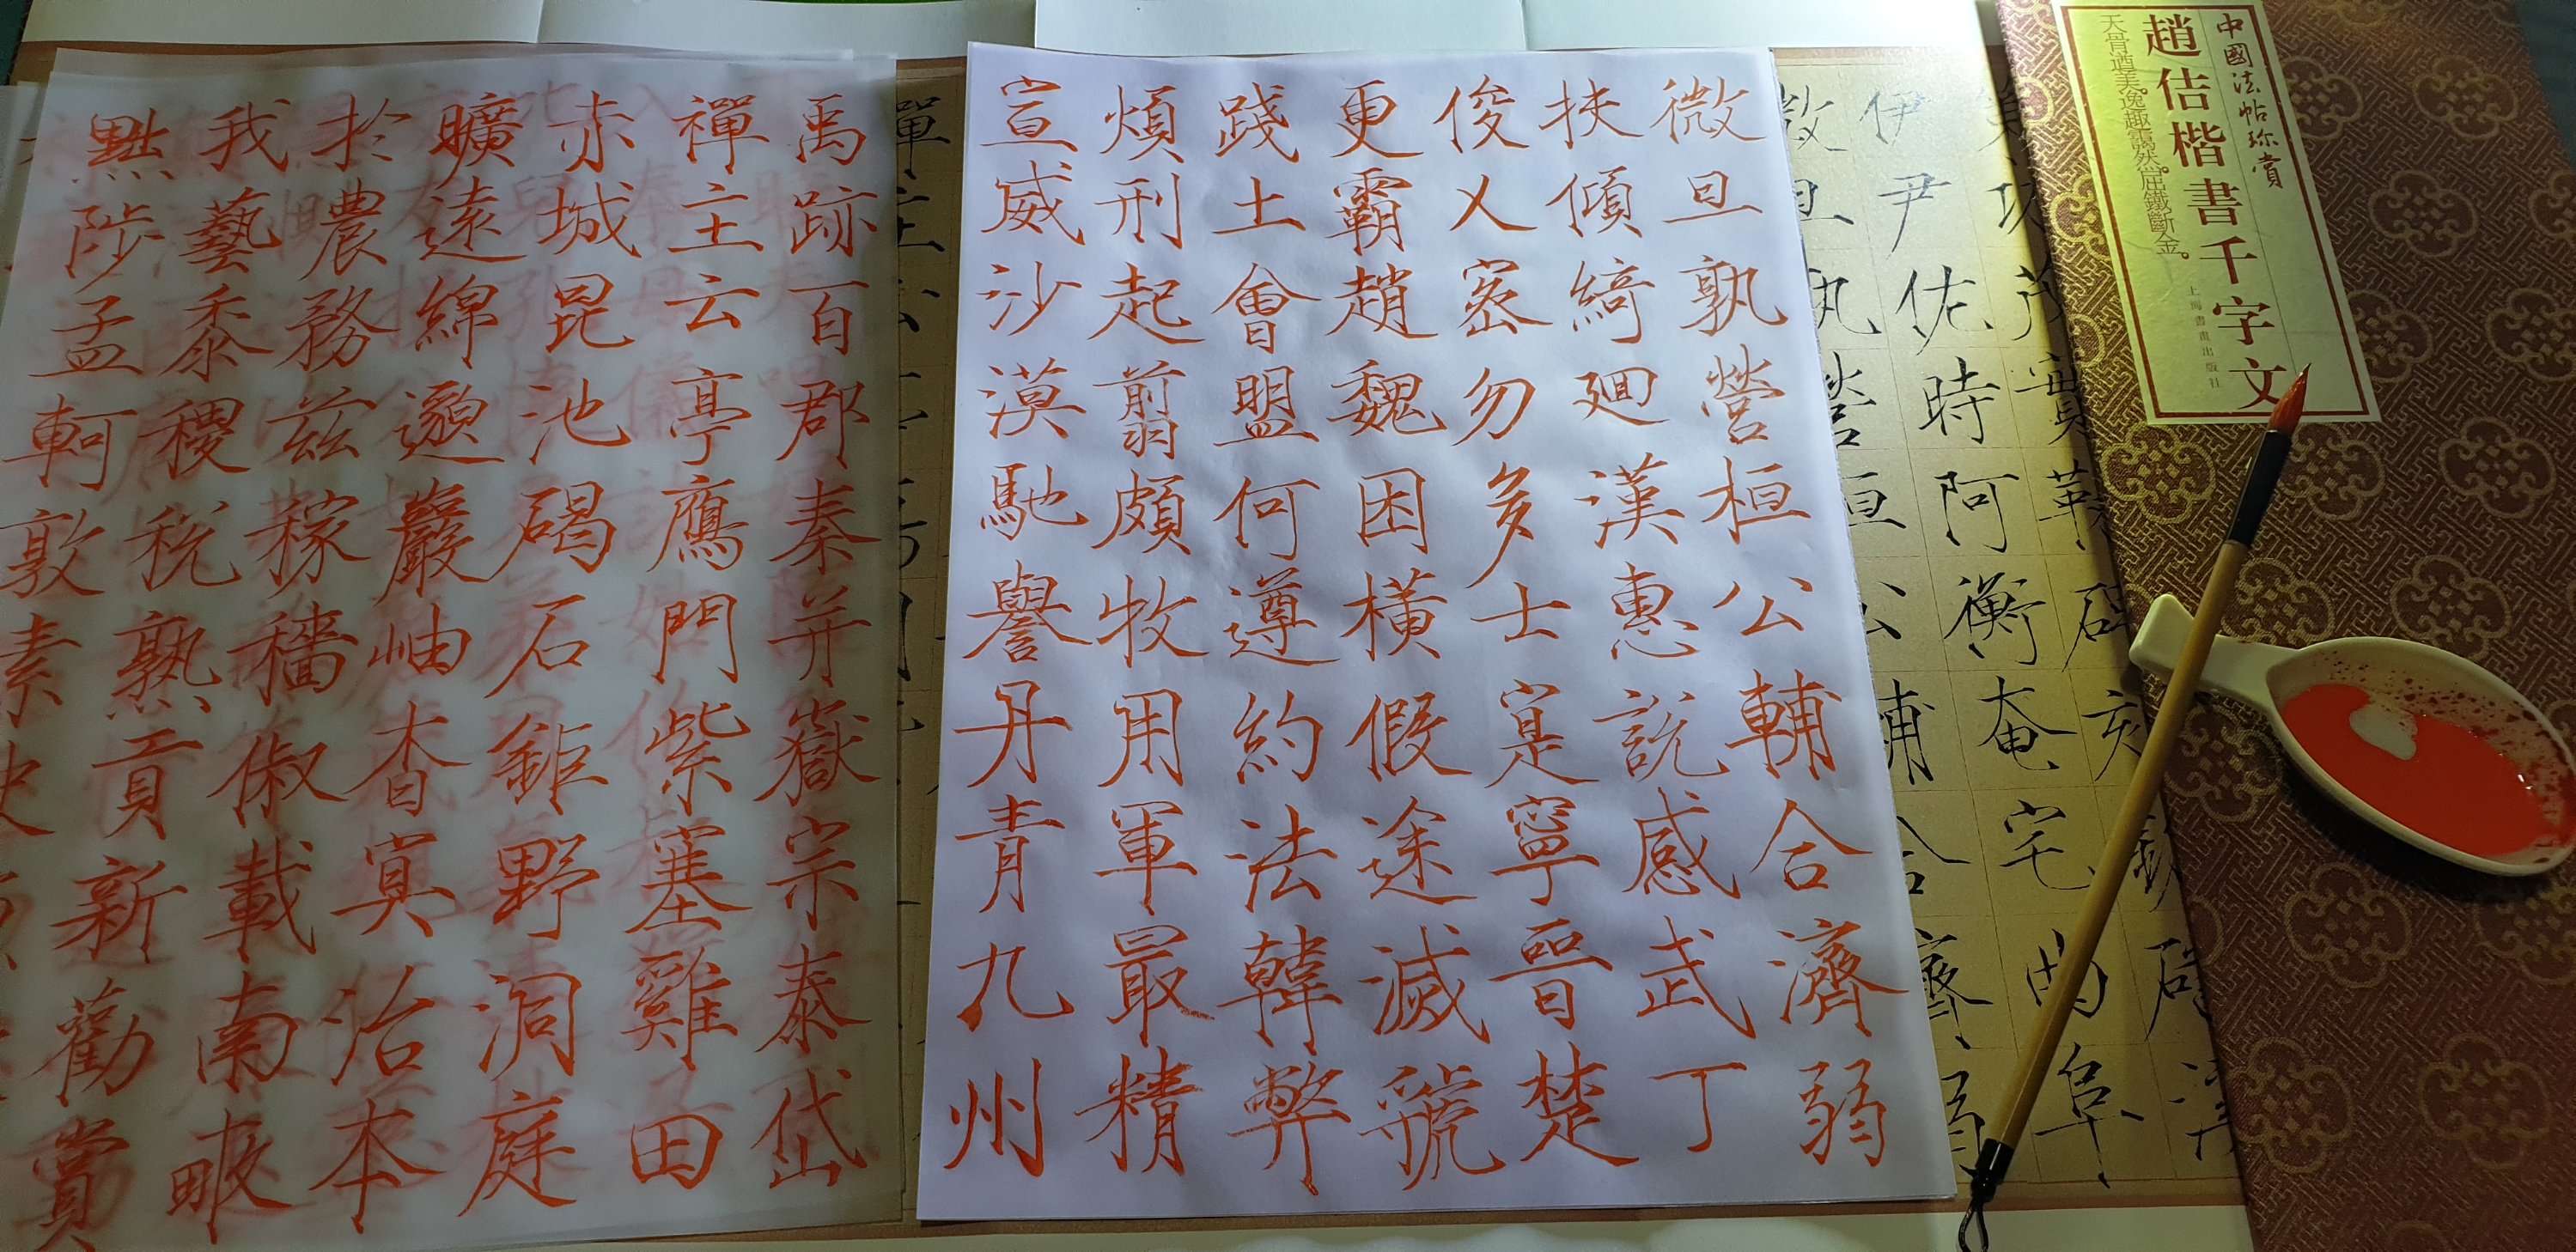 中國法帖珍賞
趙佶楷書千字文
天骨遒美。逸趣靄然。屈鐵斷金。
上海書畫出版社
伊尹佐時阿衡奄宅曲阜
微旦孰營桓公輔合濟弱
扶傾綺廻漢惠說感武丁
俊乂密勿多士寔寧晉楚
更霸趙魏困橫假途滅虢
踐土會盟何遵約法韓弊
煩刑起翦頗牧用軍最精
宣威沙漠馳譽丹青九州
禹跡百郡秦并嶽宗泰岱
禪主云亭鷹門紫塞雞田
赤城昆池碣石鉅野洞庭
曠遠綿邈巖岫杳冥治本
於農務茲稼穡俶載南畝
我藝黍稷稅熟貢新勸賞
黜陟孟軻敦素